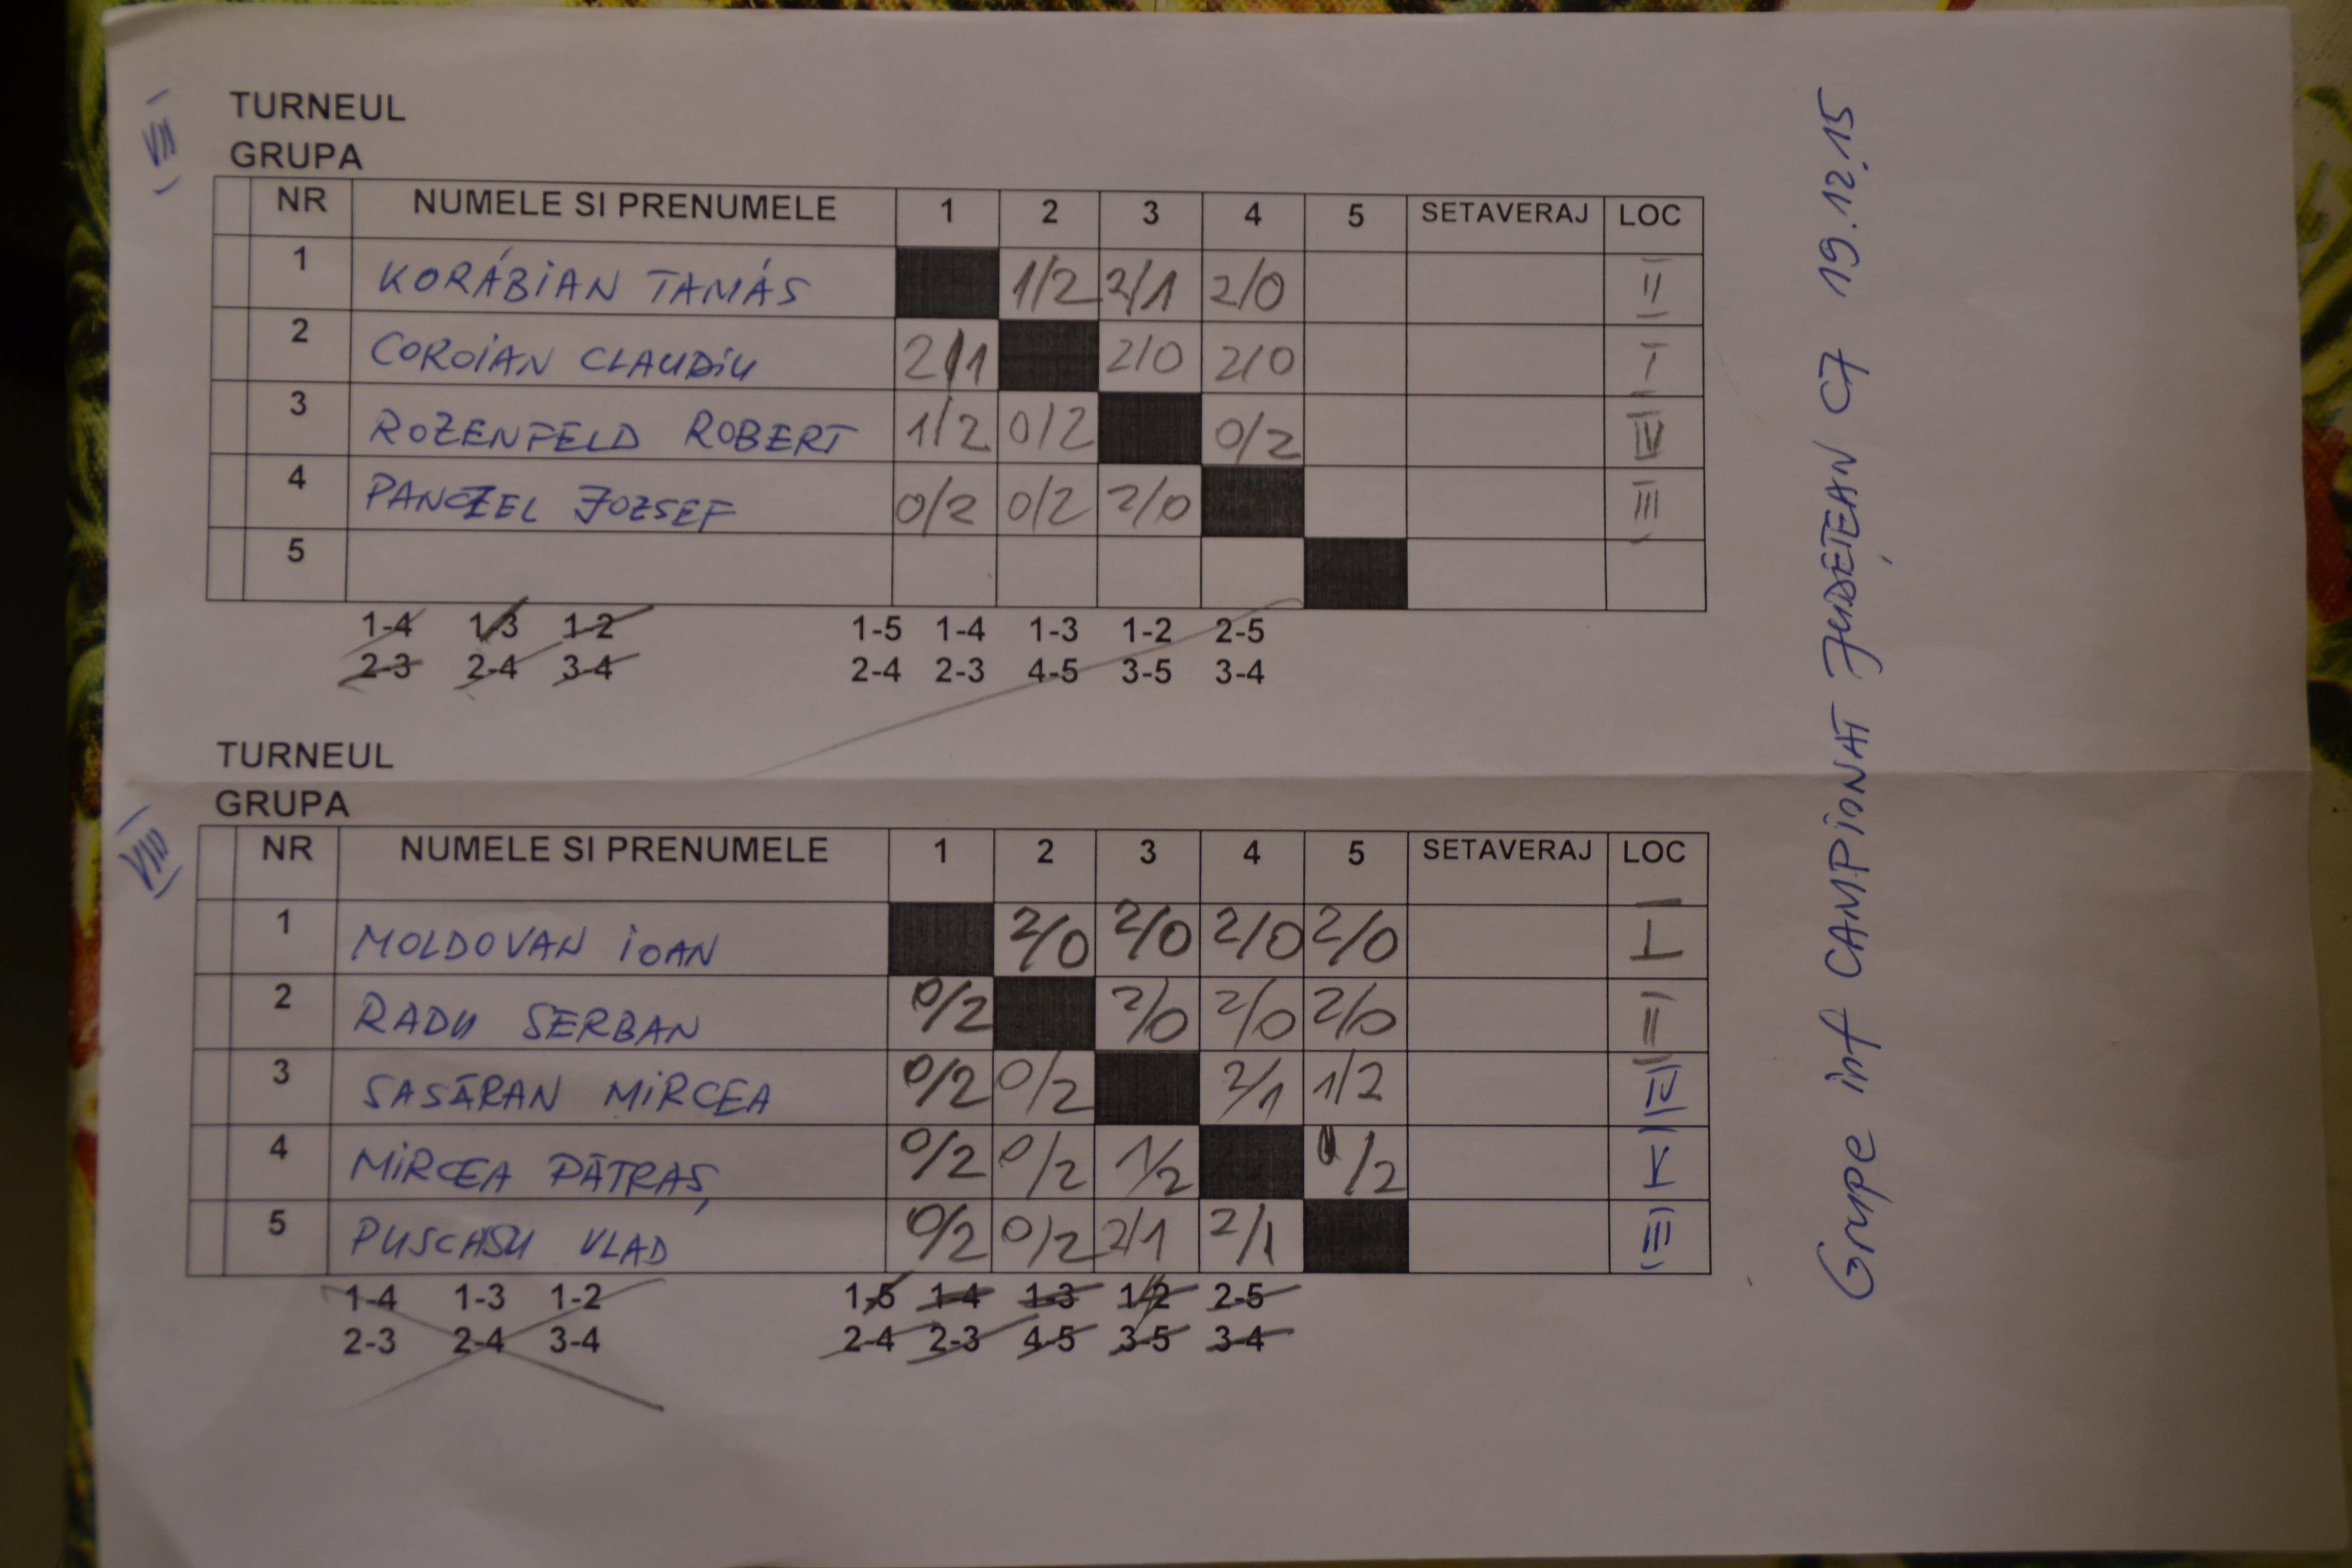 VII
TURNEUL
GRUPA
NR NUMELE SI PRENUMELE 1 2 3 4 5 SETAVERAJ LOC
1 KORÁBIAN TAMÁS 1/2 2/1 2/0 II
2 COROIAN CLAUDIU 2/1 2/0 2/0 I
3 ROZENFELD ROBERT 1/2 0/2 0/2 IV
4 PANCZEL JOZSEF 0/2 0/2 2/0 III
5
1-4 1-3 1-2 1-5 1-4 1-3 1-2 2-5
2-3 2-4 3-4 2-4 2-3 4-5 3-5 3-4
VIII
TURNEUL
GRUPA
NR NUMELE SI PRENUMELE 1 2 3 4 5 SETAVERAJ LOC
1 MOLDOVAN IOAN 2/0 2/0 2/0 2/0 I
2 RADU SERBAN 0/2 2/0 2/0 2/0 II
3 SASĂRAN MIRCEA 0/2 0/2 2/1 1/2 IV
4 MIRCEA PĂTRAȘ 0/2 0/2 1/2 /2 V
5 VLAD 0/2 0/2 2/1 2/1 III
1-4 1-3 1-2 1-5 1-4 1-3 1-2 2-5
2-3 2-4 3-4 2-4 2-3 4-5 3-5 3-4
Grupe inf CAMPIONAT JUDEȚEAN CJ 19.12.15